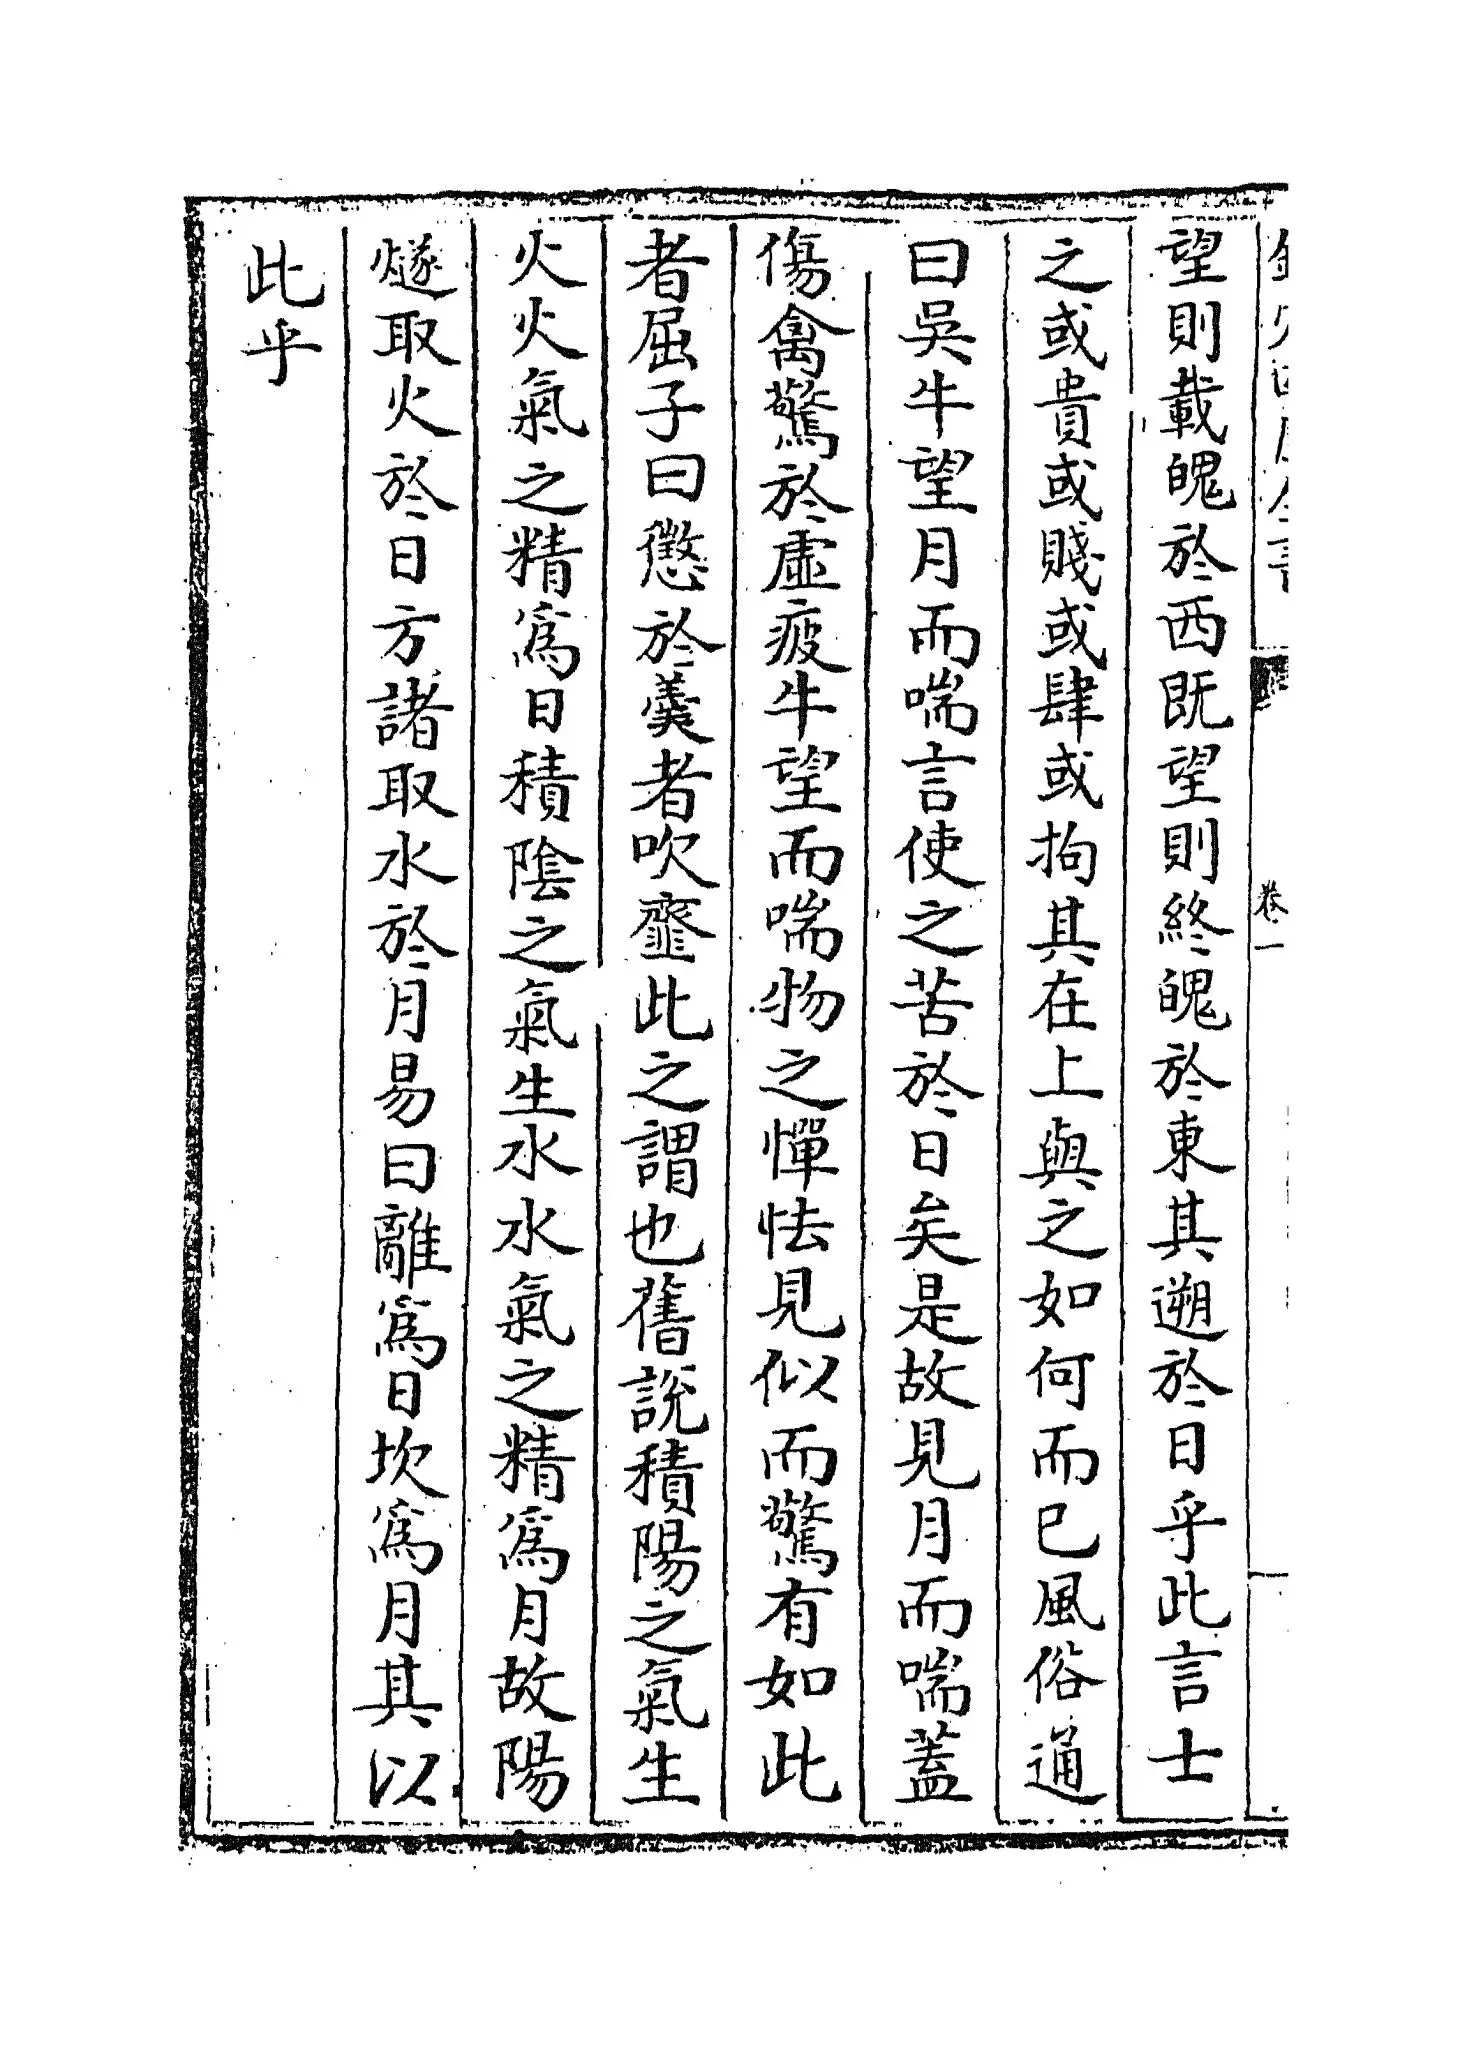 望則載魄於西既望則終魄於東其遡於日乎此言士
之或貴或賤或肆或拘其在上與之如何而已風俗通
曰吳牛望月而喘言使之苦於日矣是故見月而喘蓋
傷禽驚於虛疲牛望而喘物之憚怯見似而驚有如此
者屈子曰懲於羹者吹𩐎此之謂也舊說積陽之氣生
火火氣之精為日積陰之氣生水水氣之精為月故陽
燧取火於日方諸取水於月易曰離為日坎為月其以
此乎
卷一